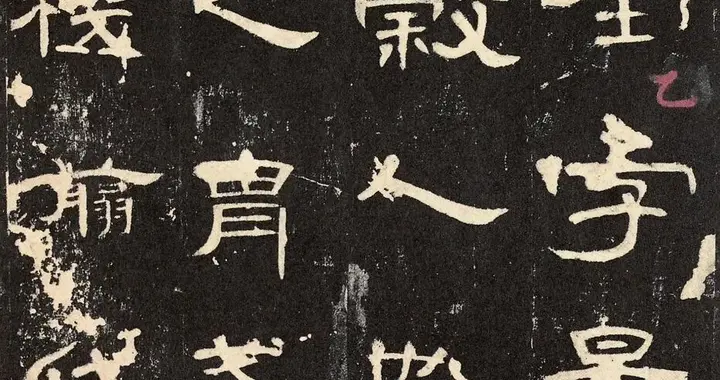 全字景
穀人也
之胄武
機翦伐
乙